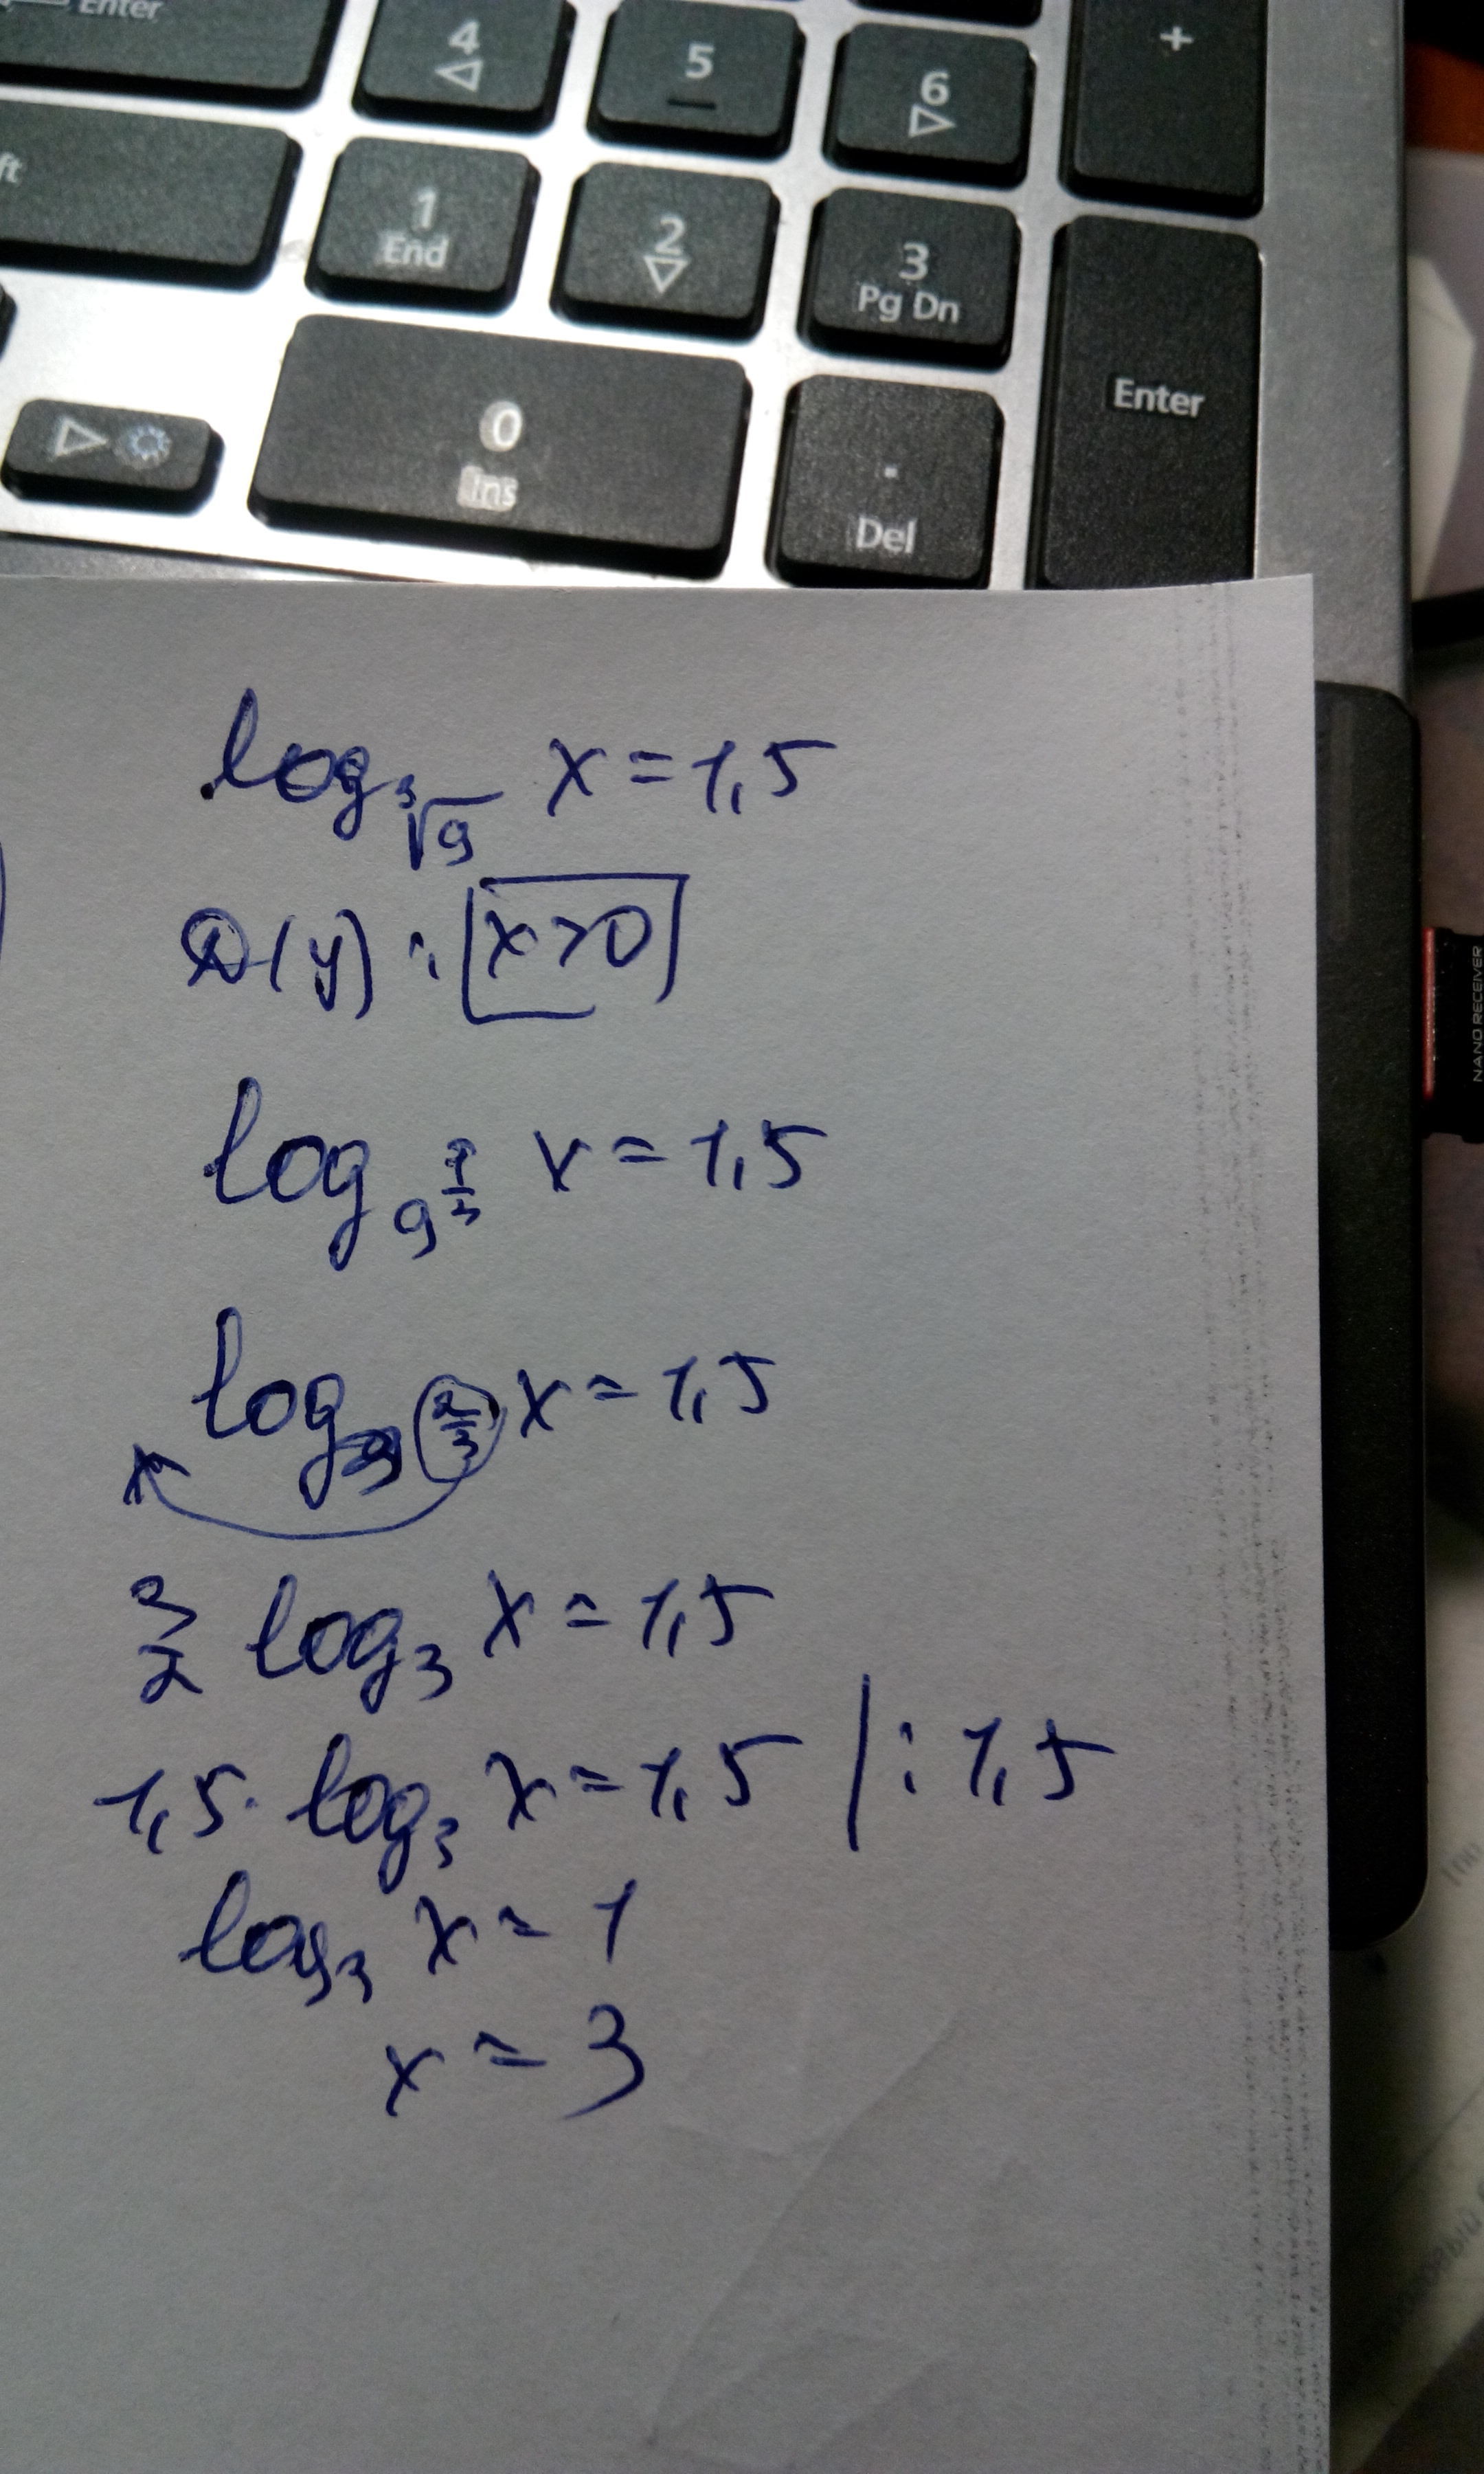 Enter
4
5
6
+
ft
1
End
2
3
Pg Dn
Enter
0
Ins
.
Del
NANO RECEIVER
log_∛9 x = 1,5
D(y) : x>0
log_9^(1/3) x = 1,5
log_3^(2/3) x = 1,5
3/2 log_3 x = 1,5
1,5 · log_3 x = 1,5 | : 1,5
log_3 x = 1
x = 3